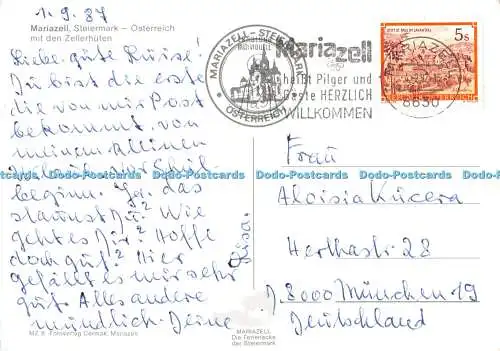 1.9.87
Mariazell, Steiermark – Österreich
mit den Zellerhüten
Liebe gute Luise!
Du bist die erste
die von mir Post
bekommt, von
meinem kleinen
beginn. Ja, das
staunst Du? Wie
geht es Dir? Hoffe
doch gut? Hier
gefällt es mir sehr
gut. Alles andere
mündlich. Deine
MARIAZELL - STEIERMARK
ÖSTERREICH
Mariazell
heißt Pilger und
Gäste HERZLICH
WILLKOMMEN
MARIAZELL
8630
5s
REPUBLIK ÖSTERREICH
Frau
Aloisia Kucera
Herthastr 28
D. 8000 München 19
Deutschland
MARIAZELL
Die Ferienecke
der Steiermark
Dodo-Postcards Dodo-Postcards Dodo-Postcards Dodo-Postcards Dodo-Postcards
Dodo-Postcards Dodo-Postcards Dodo-Postcards Dodo-Postcards Dodo-Postcards